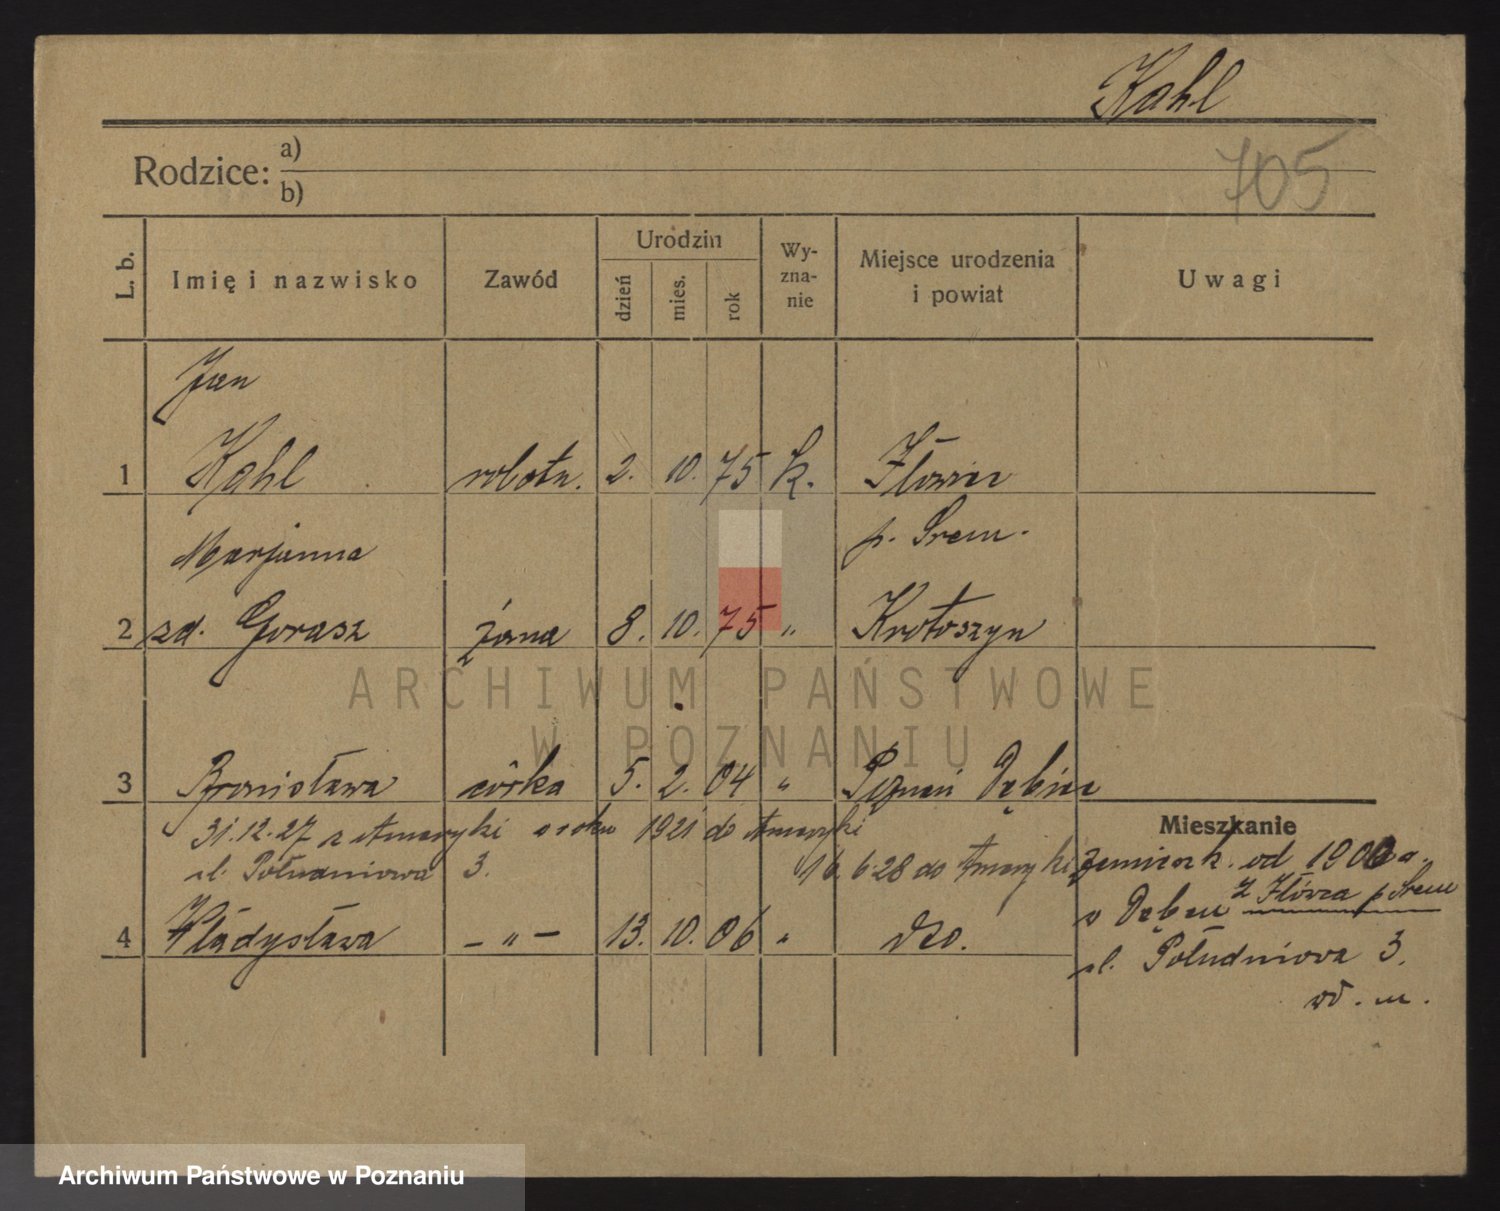 Kahl
705
Rodzice: a)
b)
L. b. Imię i nazwisko Zawód Urodzin dzień mies. rok Wy-zna-nie Miejsce urodzenia i powiat Uwagi
Jan
1 Kahl robotn. 2. 10. 75 k.
Marjanna p. Śrem.
2 zd. Gorasz żona 8. 10. 75 " Krotoszyn
ARCHIWUM PAŃSTWOWE
W POZNANIU
3 Bronisława córka 5. 2. 04 "
31.12.27 z Ameryki 1921 do Ameryki
Mieszkanie
ul. Południowa 3. 16.6.28 do Ameryki
zamieszk. od 1900 r.
p. Śrem
4 Władysława — " — 13. 10. 06 " dto.
ul. Południowa 3.
Archiwum Państwowe w Poznaniu